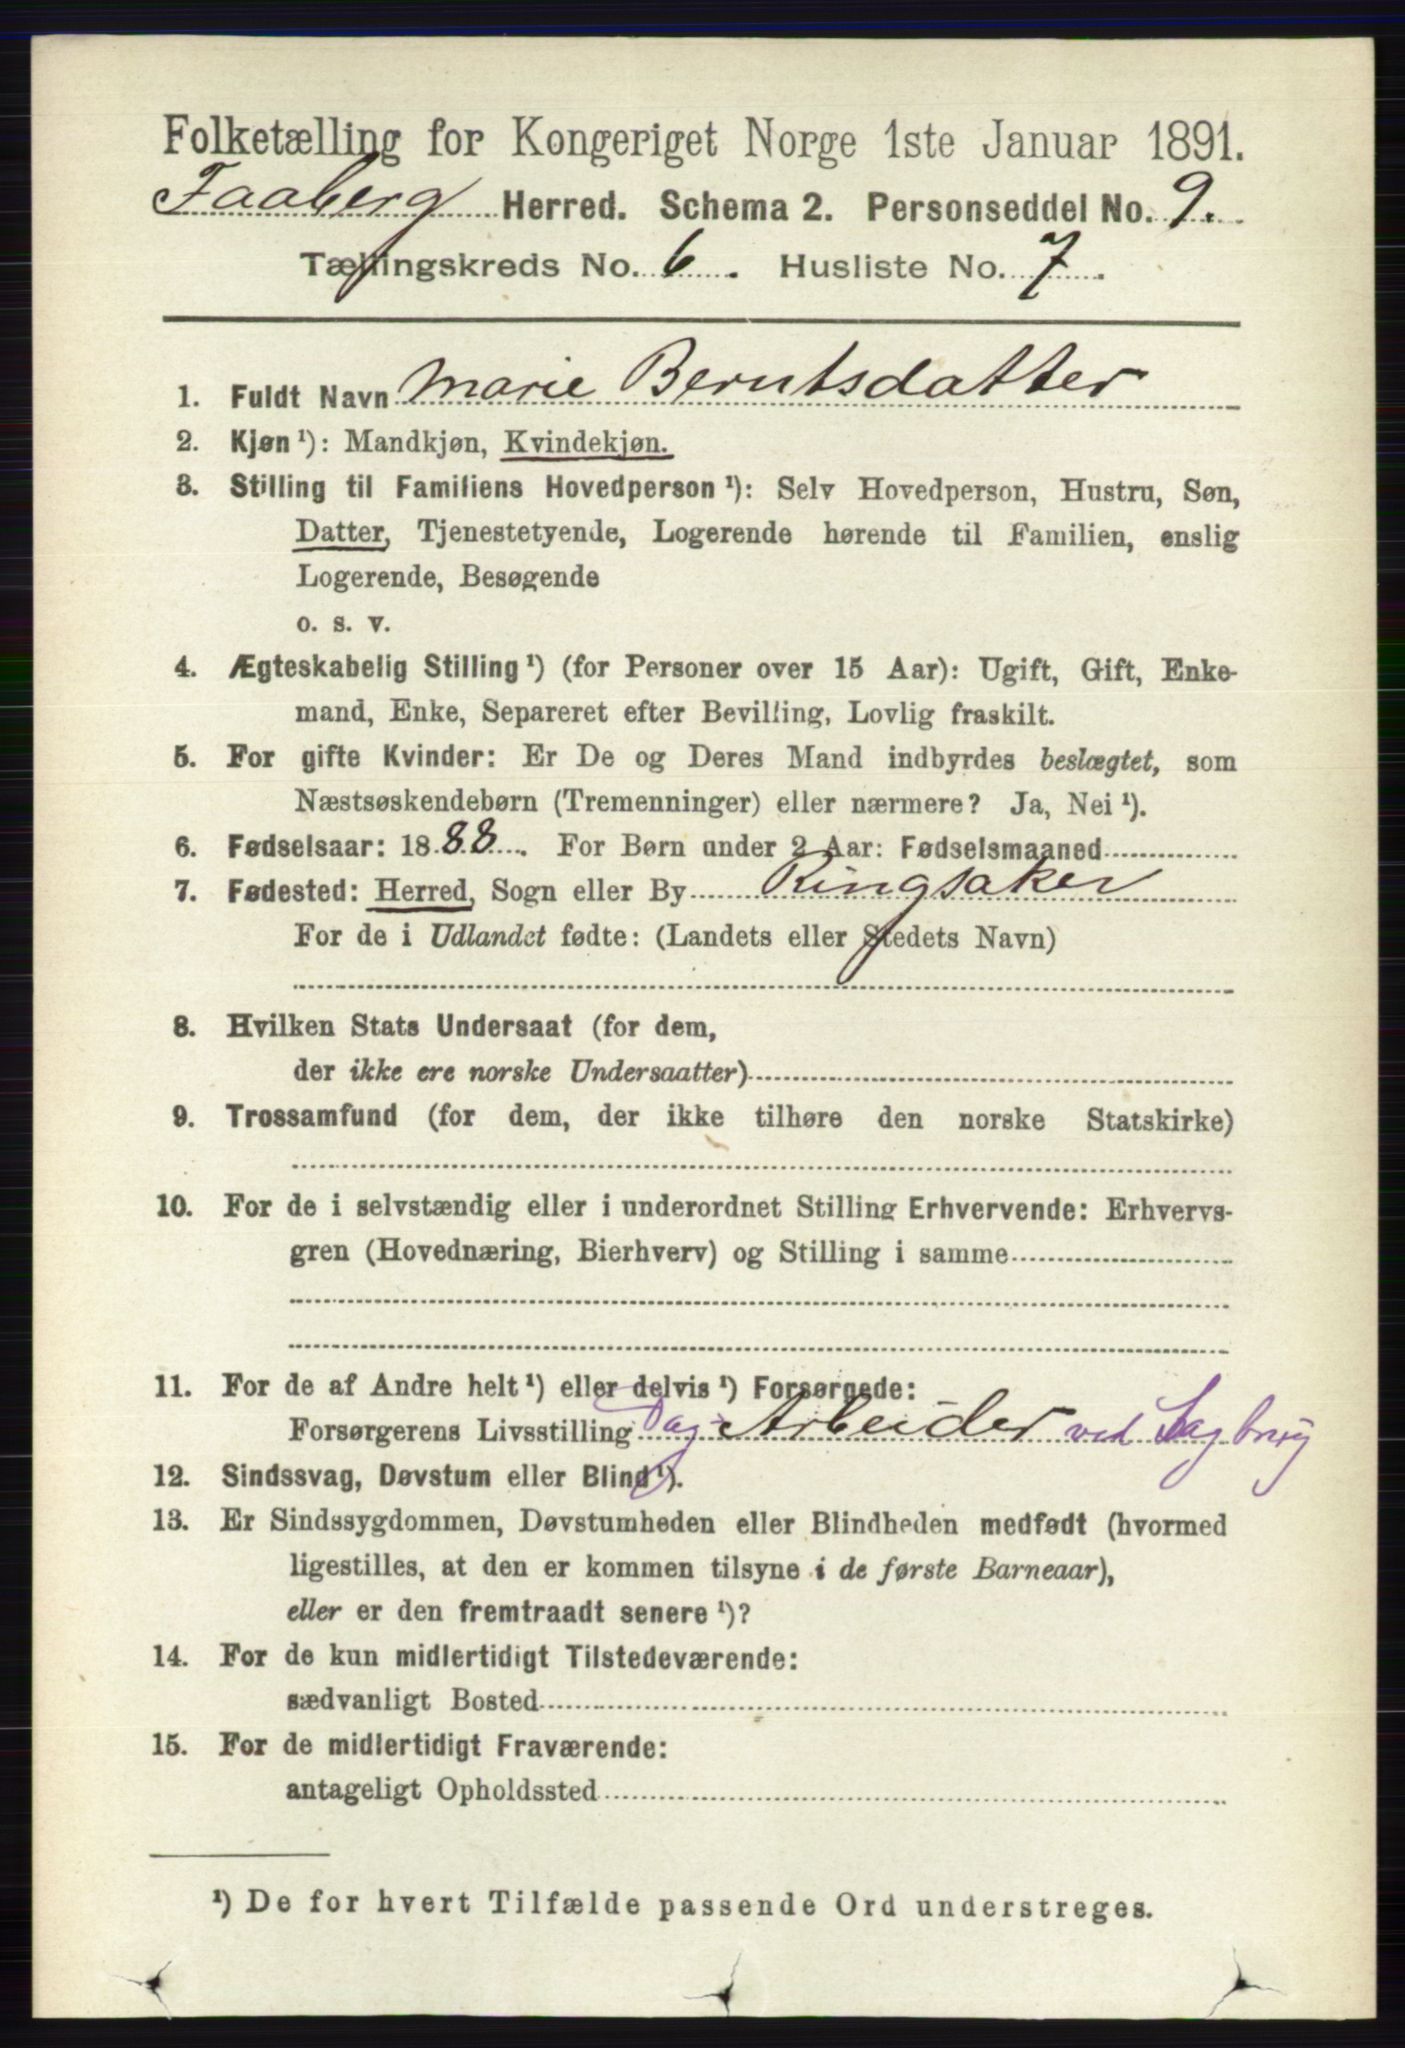 Folketælling for Kongeriget Norge 1ste Januar 1891.
Faaberg Herred. Schema 2. Personseddel No. 9.
Tællingskreds No. 6. Husliste No. 7.
1. Fuldt Navn Marie Berntsdatter
2. Kjøn ¹): Mandkjøn, Kvindekjøn.
3. Stilling til Familiens Hovedperson ¹): Selv Hovedperson, Hustru, Søn,
Datter, Tjenestetyende, Logerende hørende til Familien, enslig
Logerende, Besøgende
o. s. v.
4. Ægteskabelig Stilling ¹) (for Personer over 15 Aar): Ugift, Gift, Enke-
mand, Enke, Separeret efter Bevilling, Lovlig fraskilt.
5. For gifte Kvinder: Er De og Deres Mand indbyrdes beslægtet, som
Næstsøskendebørn (Tremenninger) eller nærmere? Ja, Nei ¹).
6. Fødselsaar: 1888. For Børn under 2 Aar: Fødselsmaaned
7. Fødested: Herred, Sogn eller By Ringsaker
For de i Udlandet fødte: (Landets eller Stedets Navn)
8. Hvilken Stats Undersaat (for dem,
der ikke ere norske Undersaatter)
9. Trossamfund (for dem, der ikke tilhøre den norske Statskirke)
10. For de i selvstændig eller i underordnet Stilling Erhvervende: Erhvervs-
gren (Hovednæring, Bierhverv) og Stilling i samme
11. For de af Andre helt ¹) eller delvis ¹) Forsørgede:
Forsørgerens Livsstilling Dag-Arbeider ved Sagbrug
12. Sindssvag, Døvstum eller Blind ¹).
13. Er Sindssygdommen, Døvstumheden eller Blindheden medfødt (hvormed
ligestilles, at den er kommen tilsyne i de første Barneaar),
eller er den fremtraadt senere ¹)?
14. For de kun midlertidigt Tilstedeværende:
sædvanligt Bosted
15. For de midlertidigt Fraværende:
antageligt Opholdssted
¹) De for hvert Tilfælde passende Ord understreges.